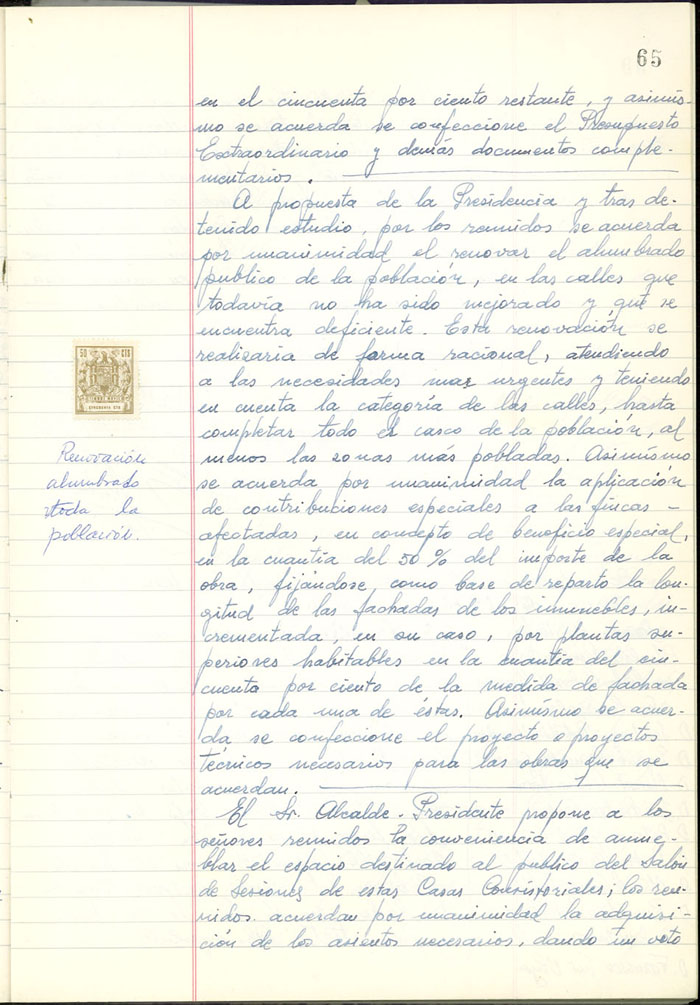 65
en el cincuenta por ciento restante, y asimis-
mo se acuerda se confeccione el Presupuesto
Extraordinario y demás documentos comple-
mentarios.
A propuesta de la Presidencia y tras de-
tenido estudio, por los reunidos se acuerda
por unanimidad el renovar el alumbrado
publico de la población, en las calles que
todavía no ha sido mejorado y que se
encuentra deficiente. Esta renovación se
realizaria de forma racional, atendiendo
a las necesidades mas urgentes y teniendo
en cuenta la categoría de las calles, hasta
completar todo el casco de la población, al
menos las zonas más pobladas. Asimismo
se acuerda por unanimidad la aplicación
de contribuciones especiales a las fincas -
afectadas, en concepto de beneficio especial,
en la cuantía del 50 % del importe de la
obra, fijándose como base de reparto la lon-
gitud de las fachadas de los inmuebles, in-
crementada, en su caso, por plantas su-
periores habitables en la cuantía del cin-
cuenta por ciento de la medida de fachada
por cada una de éstas. Asimismo se acuer-
da se confeccione el proyecto o proyectos
técnicos necesarios para las obras que se
acuerdan.
El Sr. Alcalde-Presidente propone a los
señores reunidos la conveniencia de amue-
blar el espacio destinado al publico del Salón
de Sesiones de estas Casas Consistoriales; los reu-
nidos acuerdan por unanimidad la adquisi-
ción de los asientos necesarios, dando un voto
50 CTS
CINCUENTA CTS
Renovación
alumbrado
toda la
población.